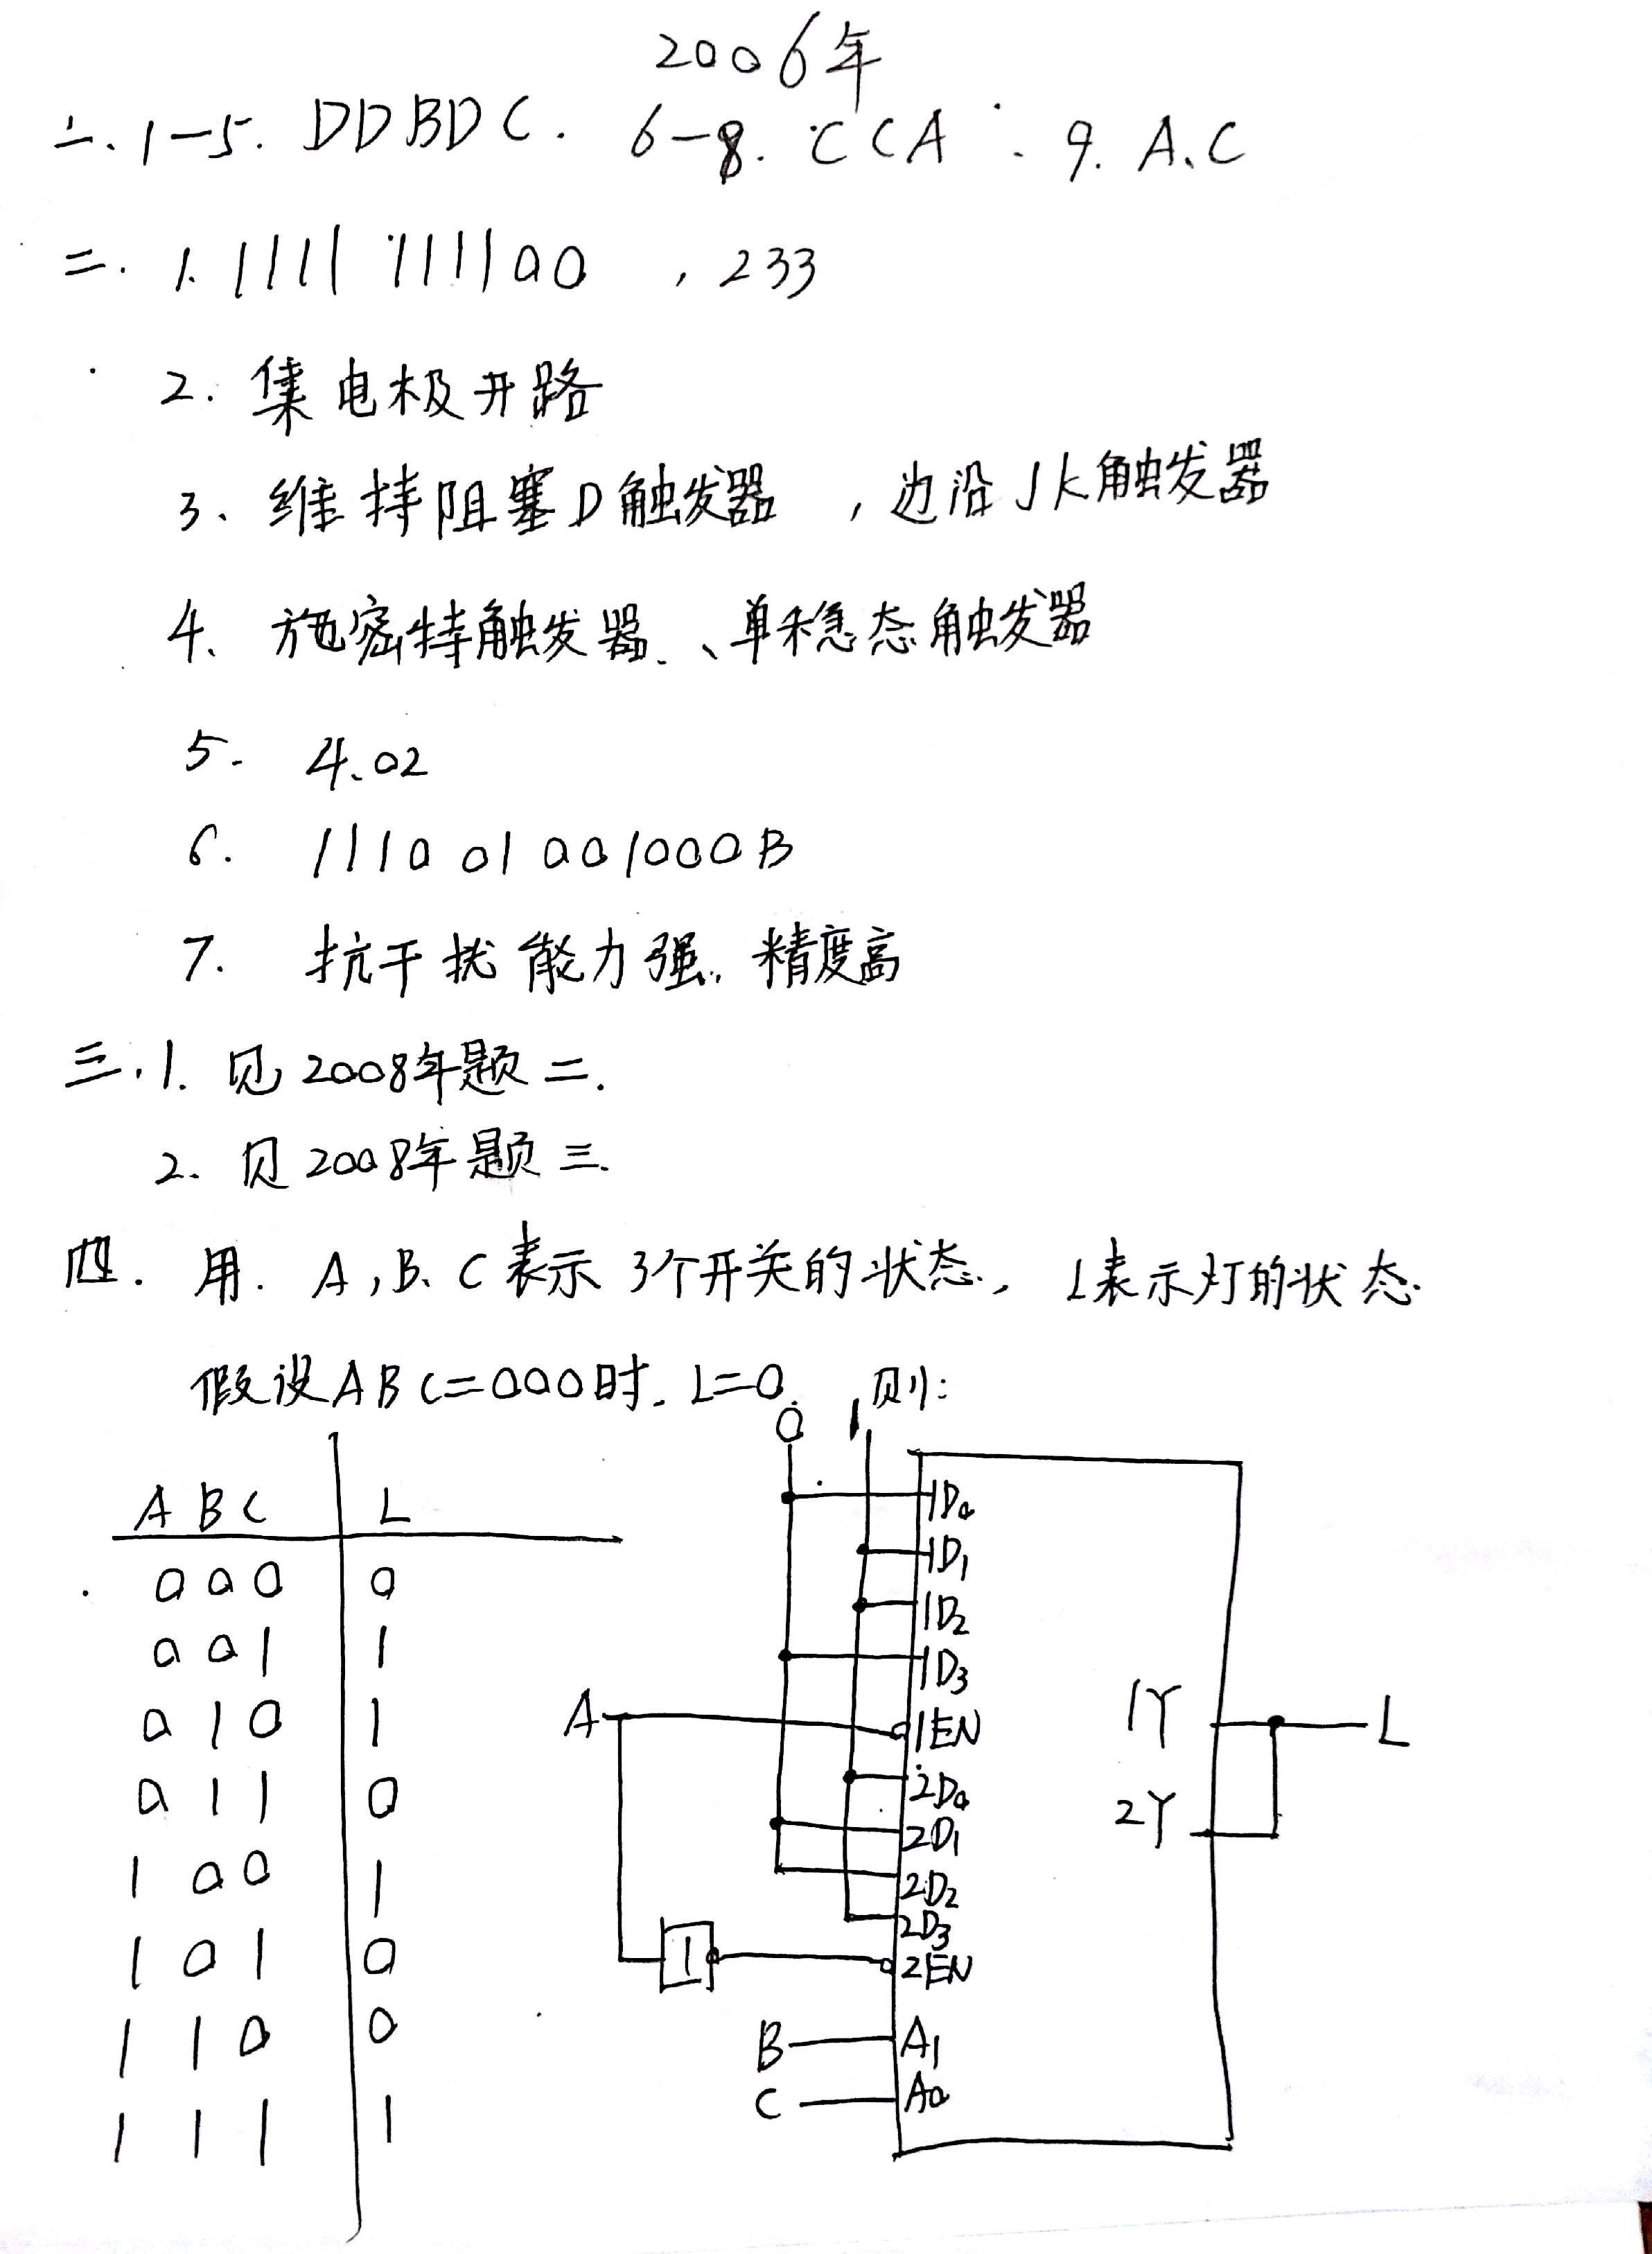 2006年
一、1-5. DDBDC. 6-8. CCA. 9. A、C
二. 1. 1111 111100 , 233
2. 集电极开路
3、维持阻塞D触发器 ，边沿JK触发器
4、施密特触发器、单稳态触发器
5. 4.02
6. 1110 01 001000B
7. 抗干扰能力强，精度高
三.1. 见2008年题二.
2. 见2008年题三.
四. 用. A,B、C表示3个开关的状态., L表示灯的状态.
假设ABC=000时. L=0. 则:
0 1
A B C L
0 0 0 0
0 0 1 1
0 1 0 1
0 1 1 0
1 0 0 1
1 0 1 0
1 1 0 0
1 1 1 1
1D0
1D1
1D2
1D3
A 1EN 1Y L
2D0
2D1 2Y
2D2
2D3
1 2EN
B A1
C A0